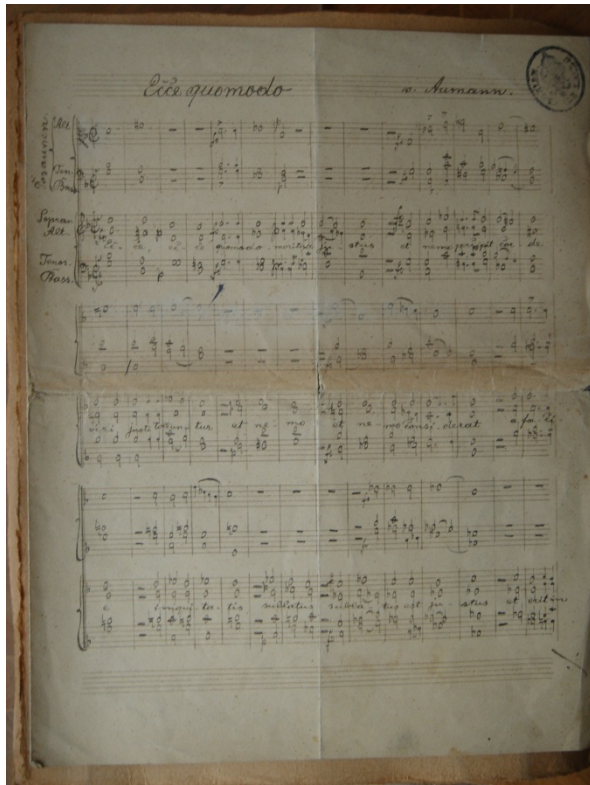 Ecce quomodo v. Aumann.
Posaunen
Alt
Ten.
Bass
Sopran
Alt.
Ecce, ecce quomodo moritur justus et nemo percipit corde
Tenor.
Bass.
viri justi tolluntur et nemo et nemo considerat a facie
e iniquitatis sublatus est justus et erit in